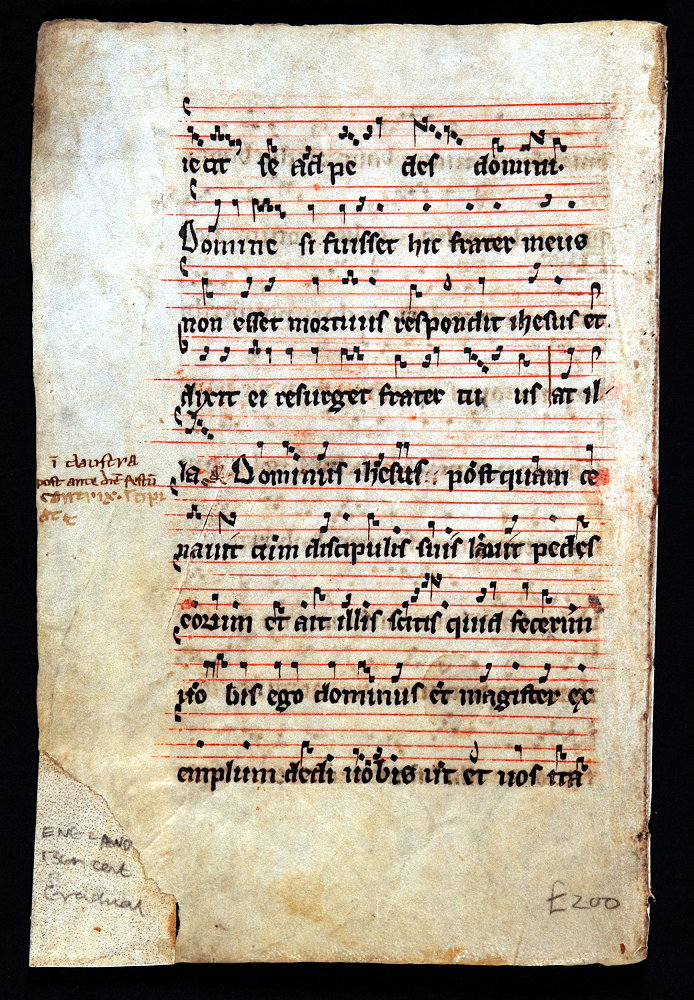 iecit se ad pe des domini.
Domine si fuisset hic frater meus
non esset mortuus respondit ihesus et
dixit ei resurget frater tu us at il
la Dominus ihesus postquam ce
nauit cum discipulis suis lauit pedes
eorum et ait illis scitis quid fecerim
uo bis ego dominus et magister ex
emplum dedi uobis ut et uos ita
ī claustra
post ante
ENGLAND
13th cent
Gradual
£200